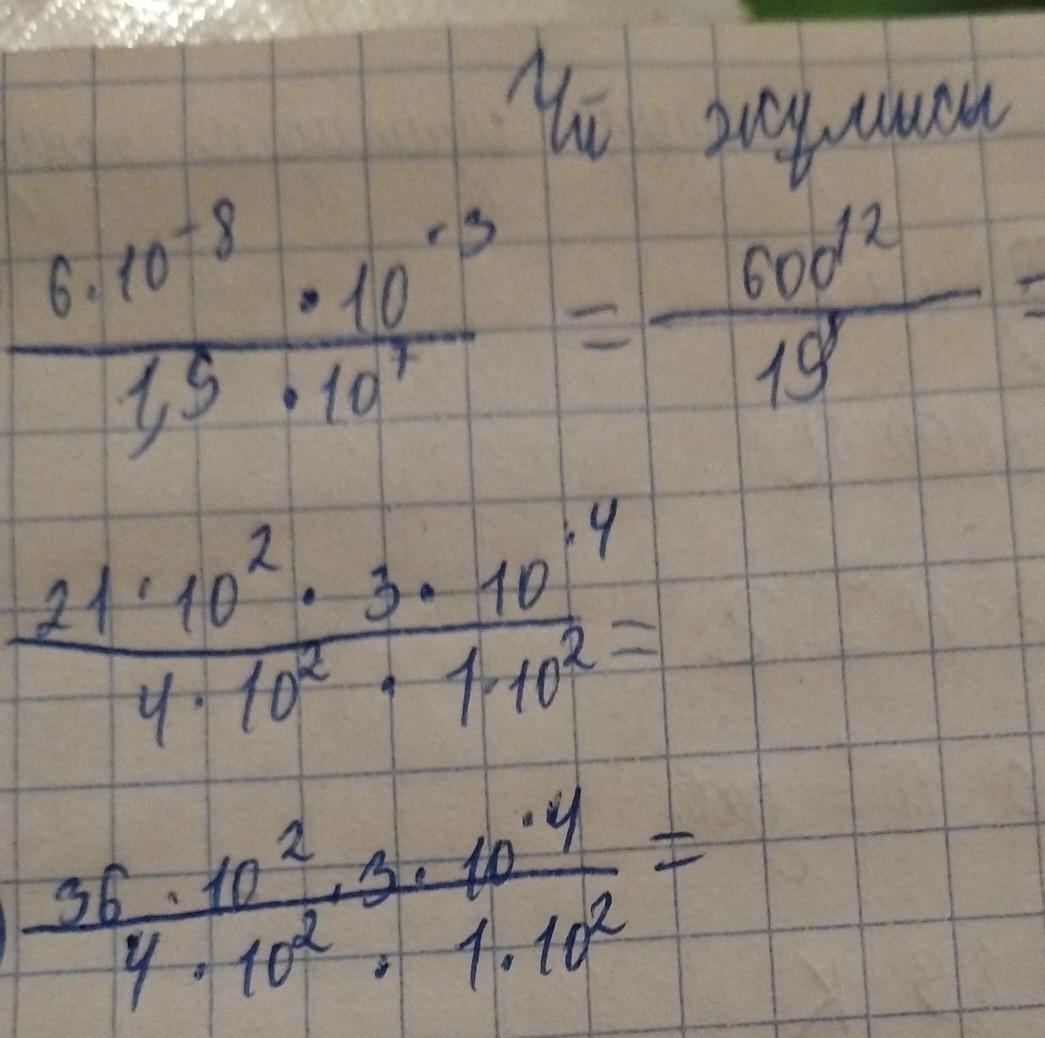 Үй жумушы
6·10⁻⁸ ·10⁻³ / 1,5 ·10⁷ = 600¹² / 15⁸ =
21·10² · 3·10⁻⁴ / 4·10² · 1·10² =
36·10² · 3·10⁻⁴ / 4·10² · 1·10² =